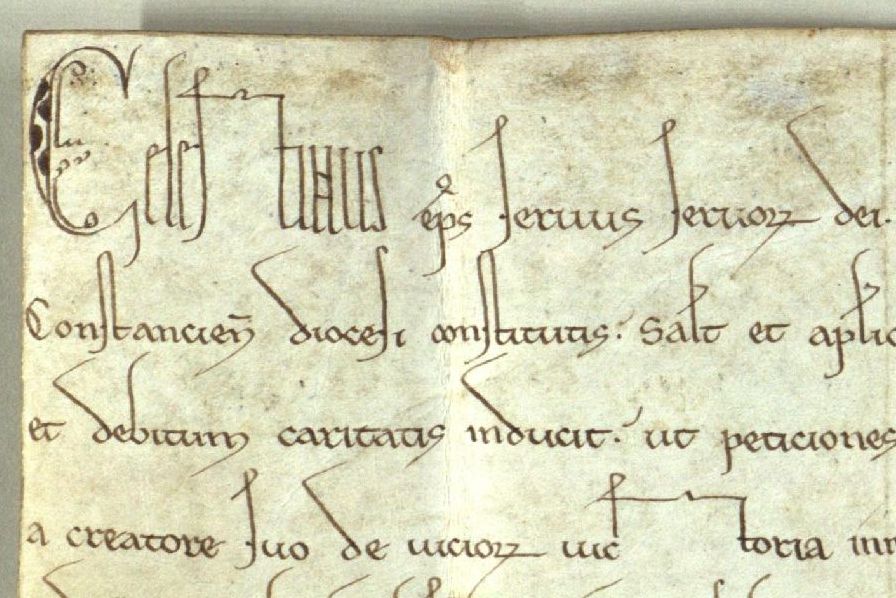 Celestinus ep̄s seruus seruoꝝ dei.
Constancien̄ diocesi constitutis. Sal̄t et ap̄lic
et debitum caritatis inducit. ut peticiones
a creatore suo de uicioꝝ uictoria in